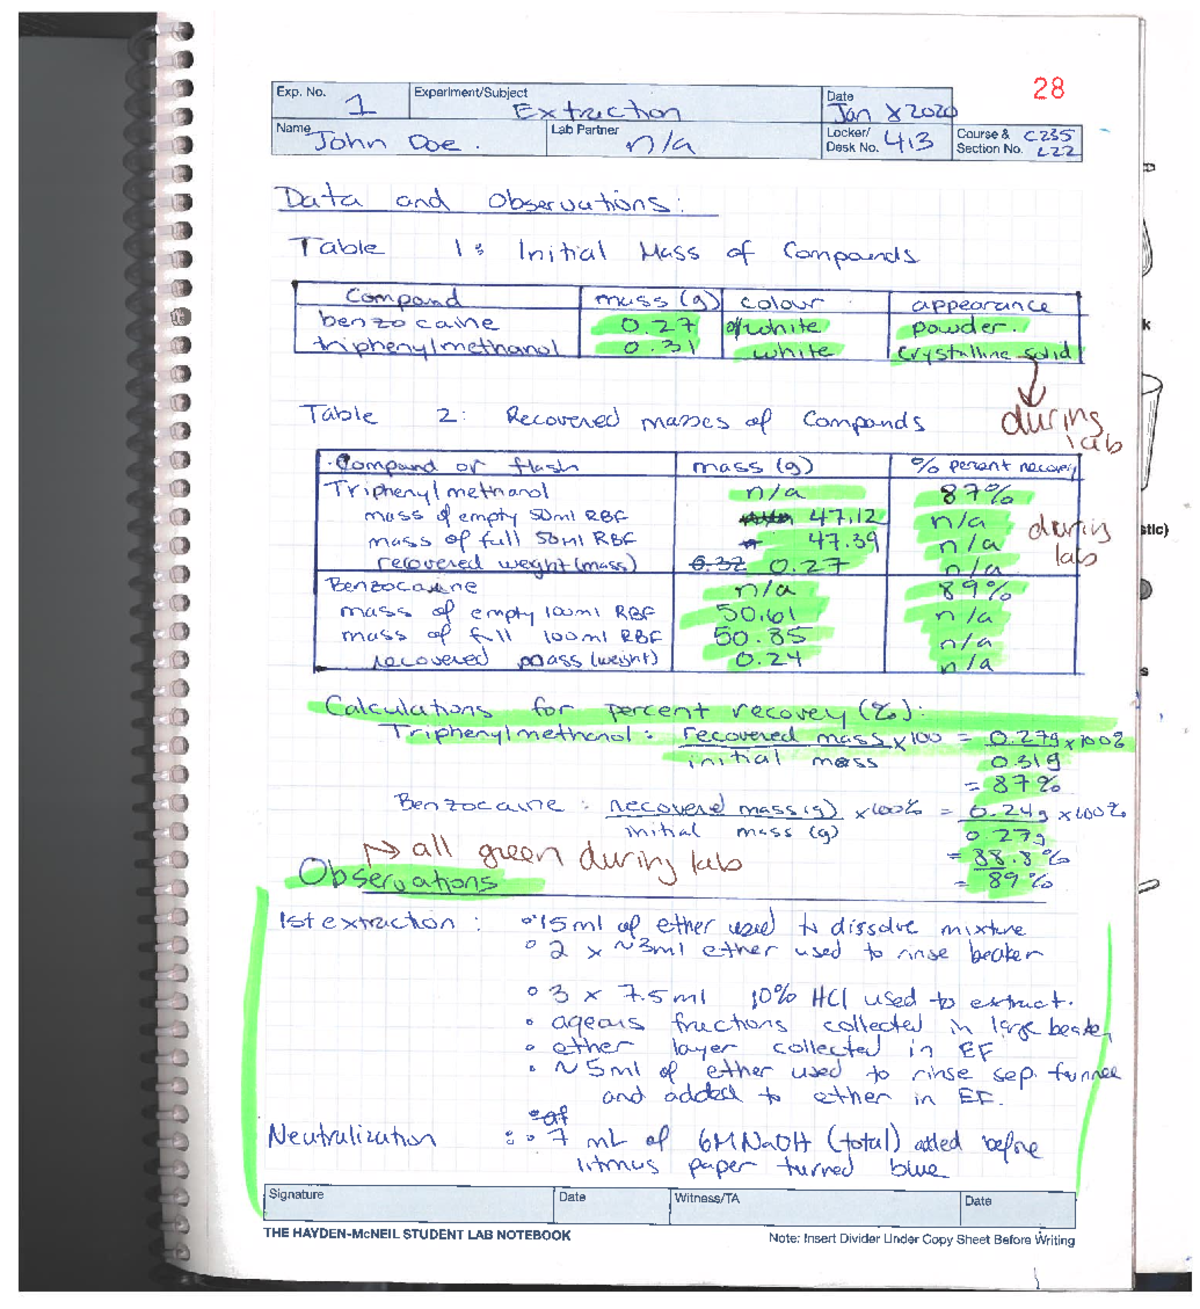 28
Exp. No. 1 Experiment/Subject Extraction Date Jan X 2020
Name John Doe. Lab Partner n/a Locker/ Desk No. 413 Course & Section No. C235 L22
Data and Observations:
Table 1: Initial Mass of Compounds
Compound mass (g) colour appearance
benzocaine 0.27 off white powder.
triphenylmethanol 0.31 white crystalline solid
during lab
Table 2: Recovered masses of Compounds
Compound or flash mass (g) % percent recovery
Triphenylmethanol n/a 87%
mass of empty 50ml RBF 47.12 n/a
mass of full 50ml RBF 47.39 n/a
recovered weight (mass) 0.32 0.27 n/a
during lab
Benzocaine n/a 89%
mass of empty 100ml RBF 50.61 n/a
mass of full 100ml RBF 50.85 n/a
recovered mass (weight) 0.24 n/a
Calculations for percent recovey (%):
Triphenylmethanol: recovered mass x100 = 0.27g x100%
initial mass 0.31g
= 87%
Benzocaine: recovered mass (g) x100% = 0.24g x100%
initial mass (g) 0.27g
= 88.8%
= 89%
→ all green during lab
Observations
1st extraction: °15ml of ether used to dissolve mixture
° 2 x ~3ml ether used to rinse beaker
° 3 x 7.5ml 10% HCl used to extract.
• aqeous fractions collected in large beaker
• ether layer collected in EF
• ~5ml of ether used to rinse sep. funnel
and added to ether in EF.
af
Neutralization : • 7 mL of 6M NaOH (total) added before
litmus paper turned blue
Signature Date Witness/TA Date
THE HAYDEN-McNEIL STUDENT LAB NOTEBOOK Note: Insert Divider Under Copy Sheet Before Writing
k
stic)
s